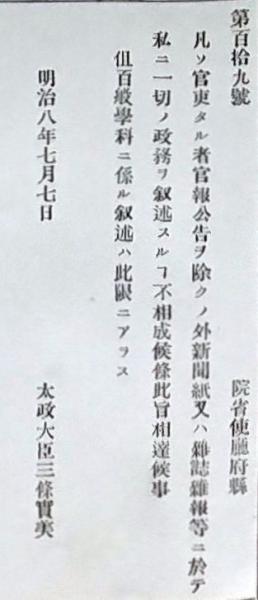 第百拾九號 院省使廳府縣
凡ソ官吏タル者官報公告ヲ除クノ外新聞紙又ハ雜誌雜報等ニ於テ
私ニ一切ノ政務ヲ叙述スルヿ不相成候條此旨相達候事
但百般學科ニ係ル叙述ハ此限ニアラス
明治八年七月七日 太政大臣三條實美